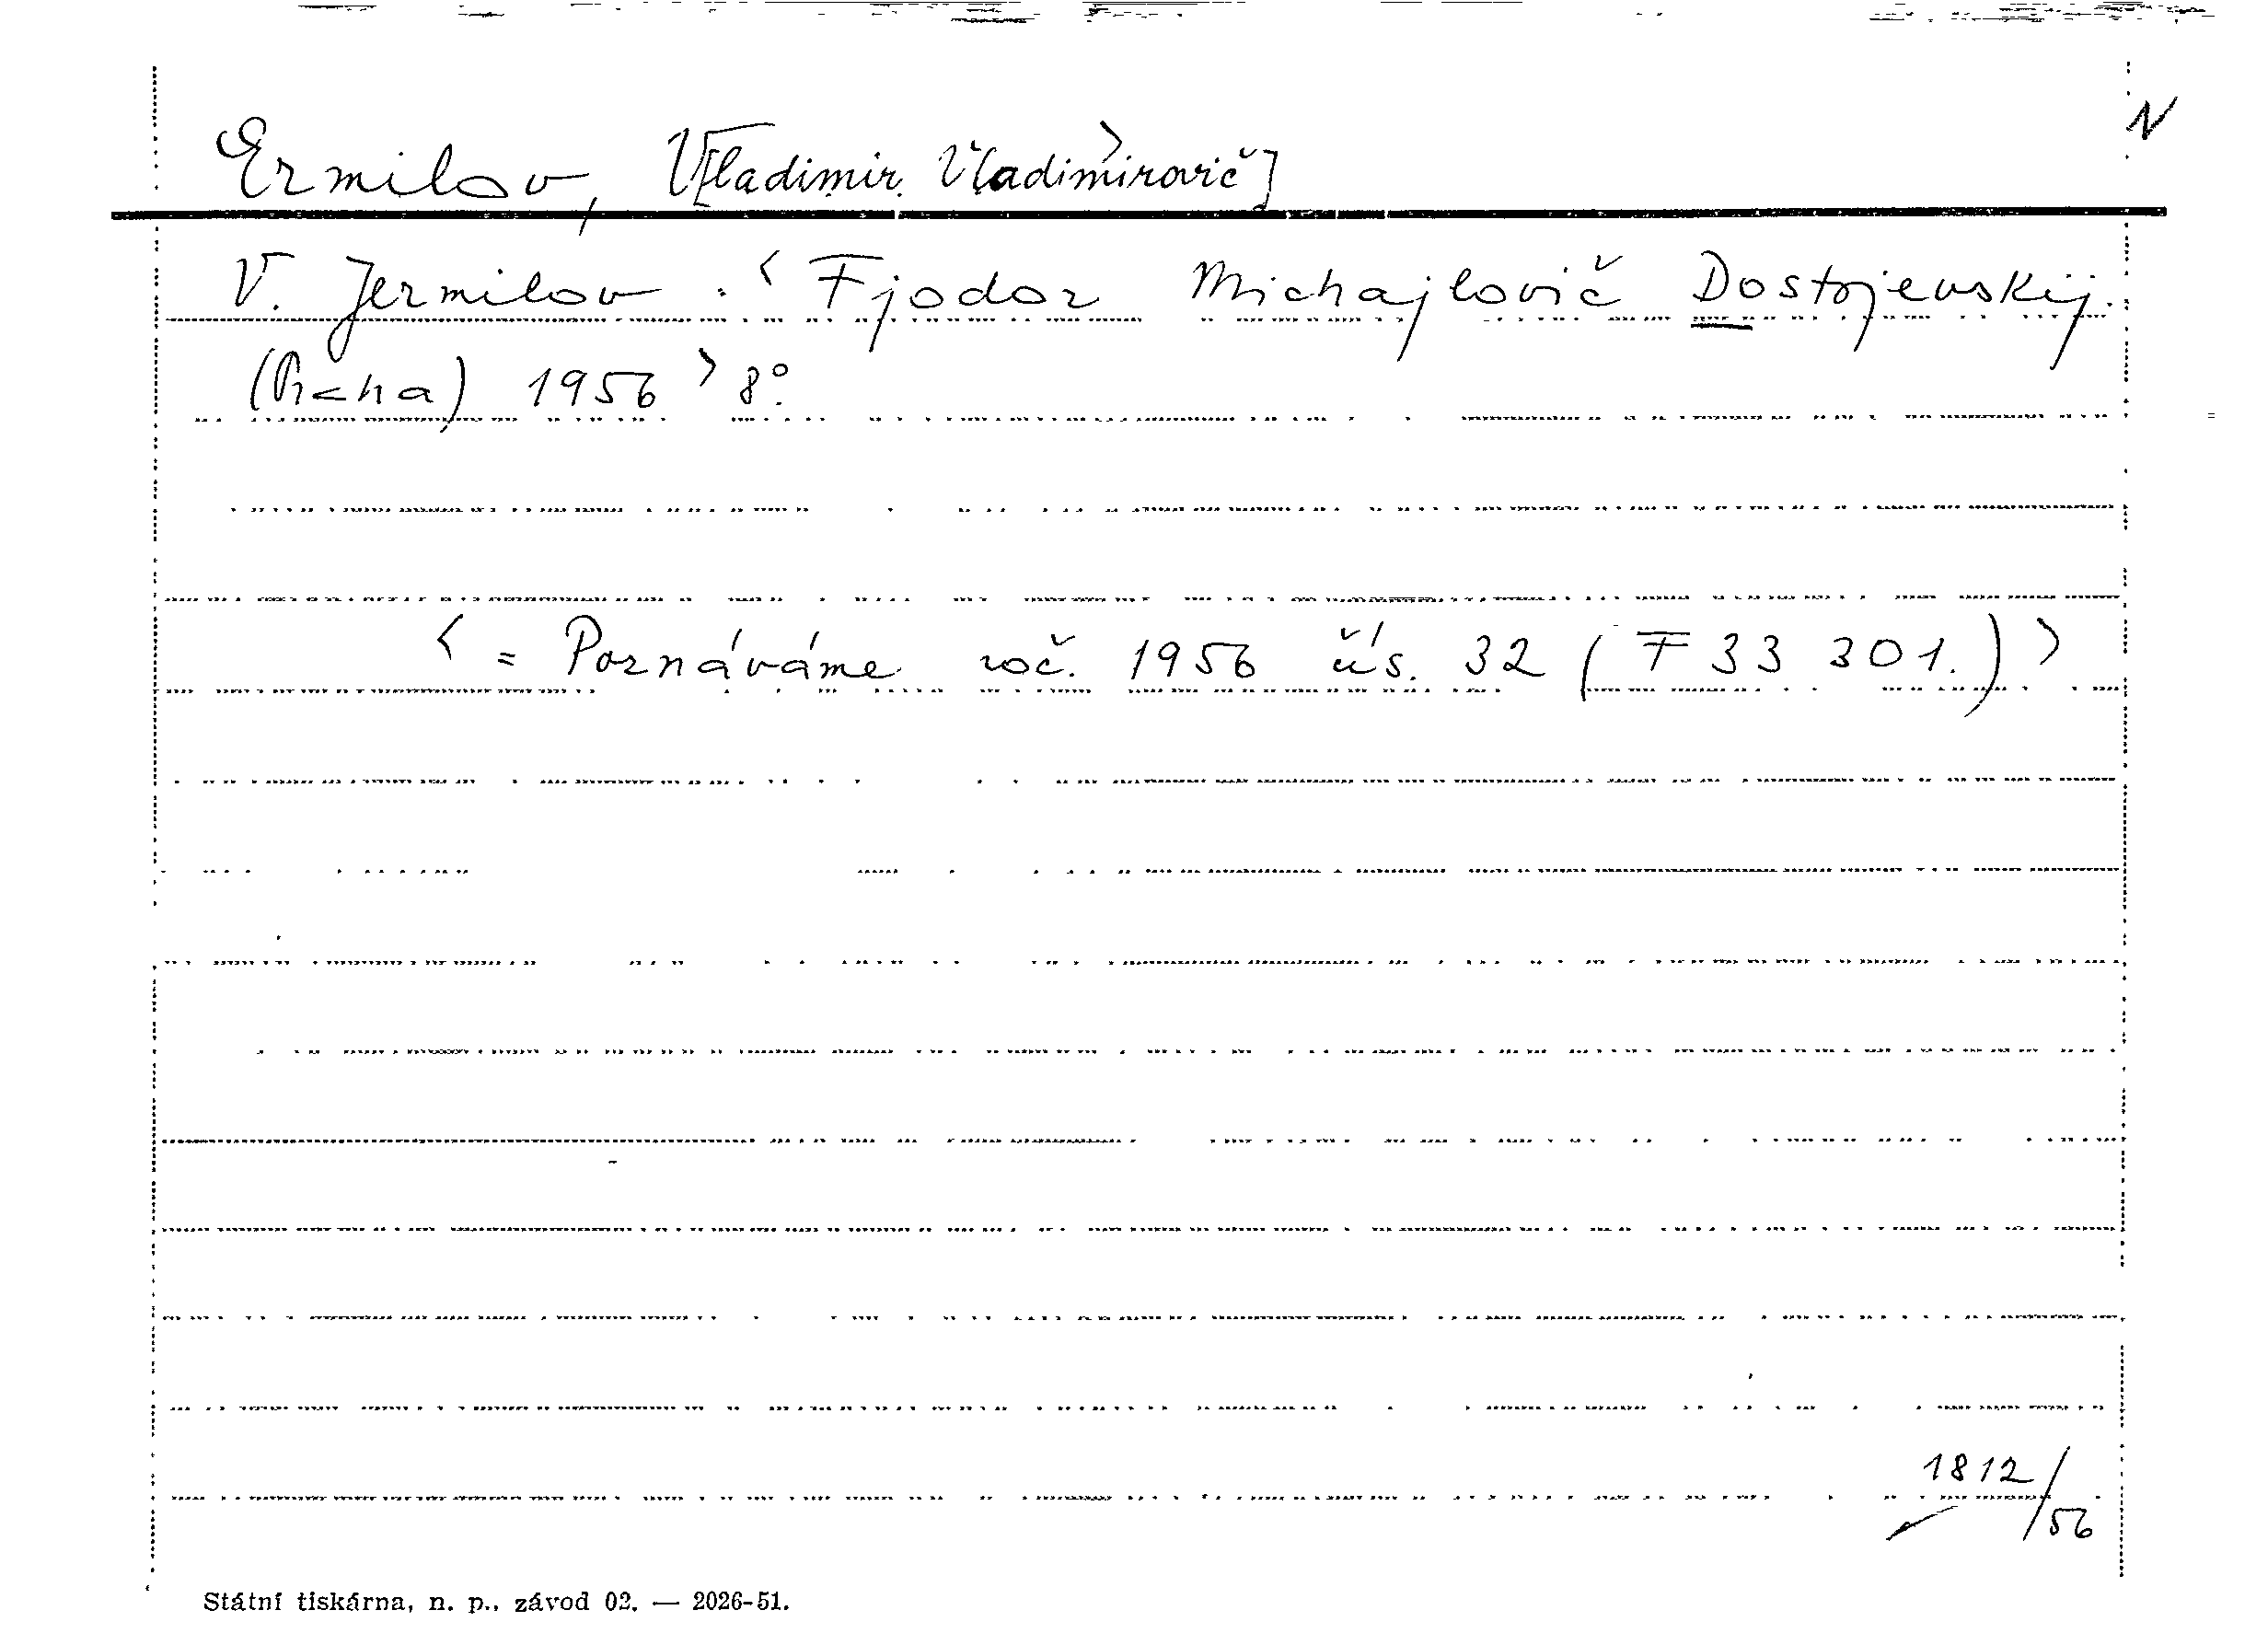 N
Ermilov, V[ladimir Vladimirovič]
V. Jermilov: < Fjodor Michajlovič Dostojevskij.
(Praha) 1956 > 8°.
< = Poznáváme roč. 1956 čís. 32 (F 33 301.) >
1812/56
Státní tiskárna, n. p., závod 02. — 2026-51.